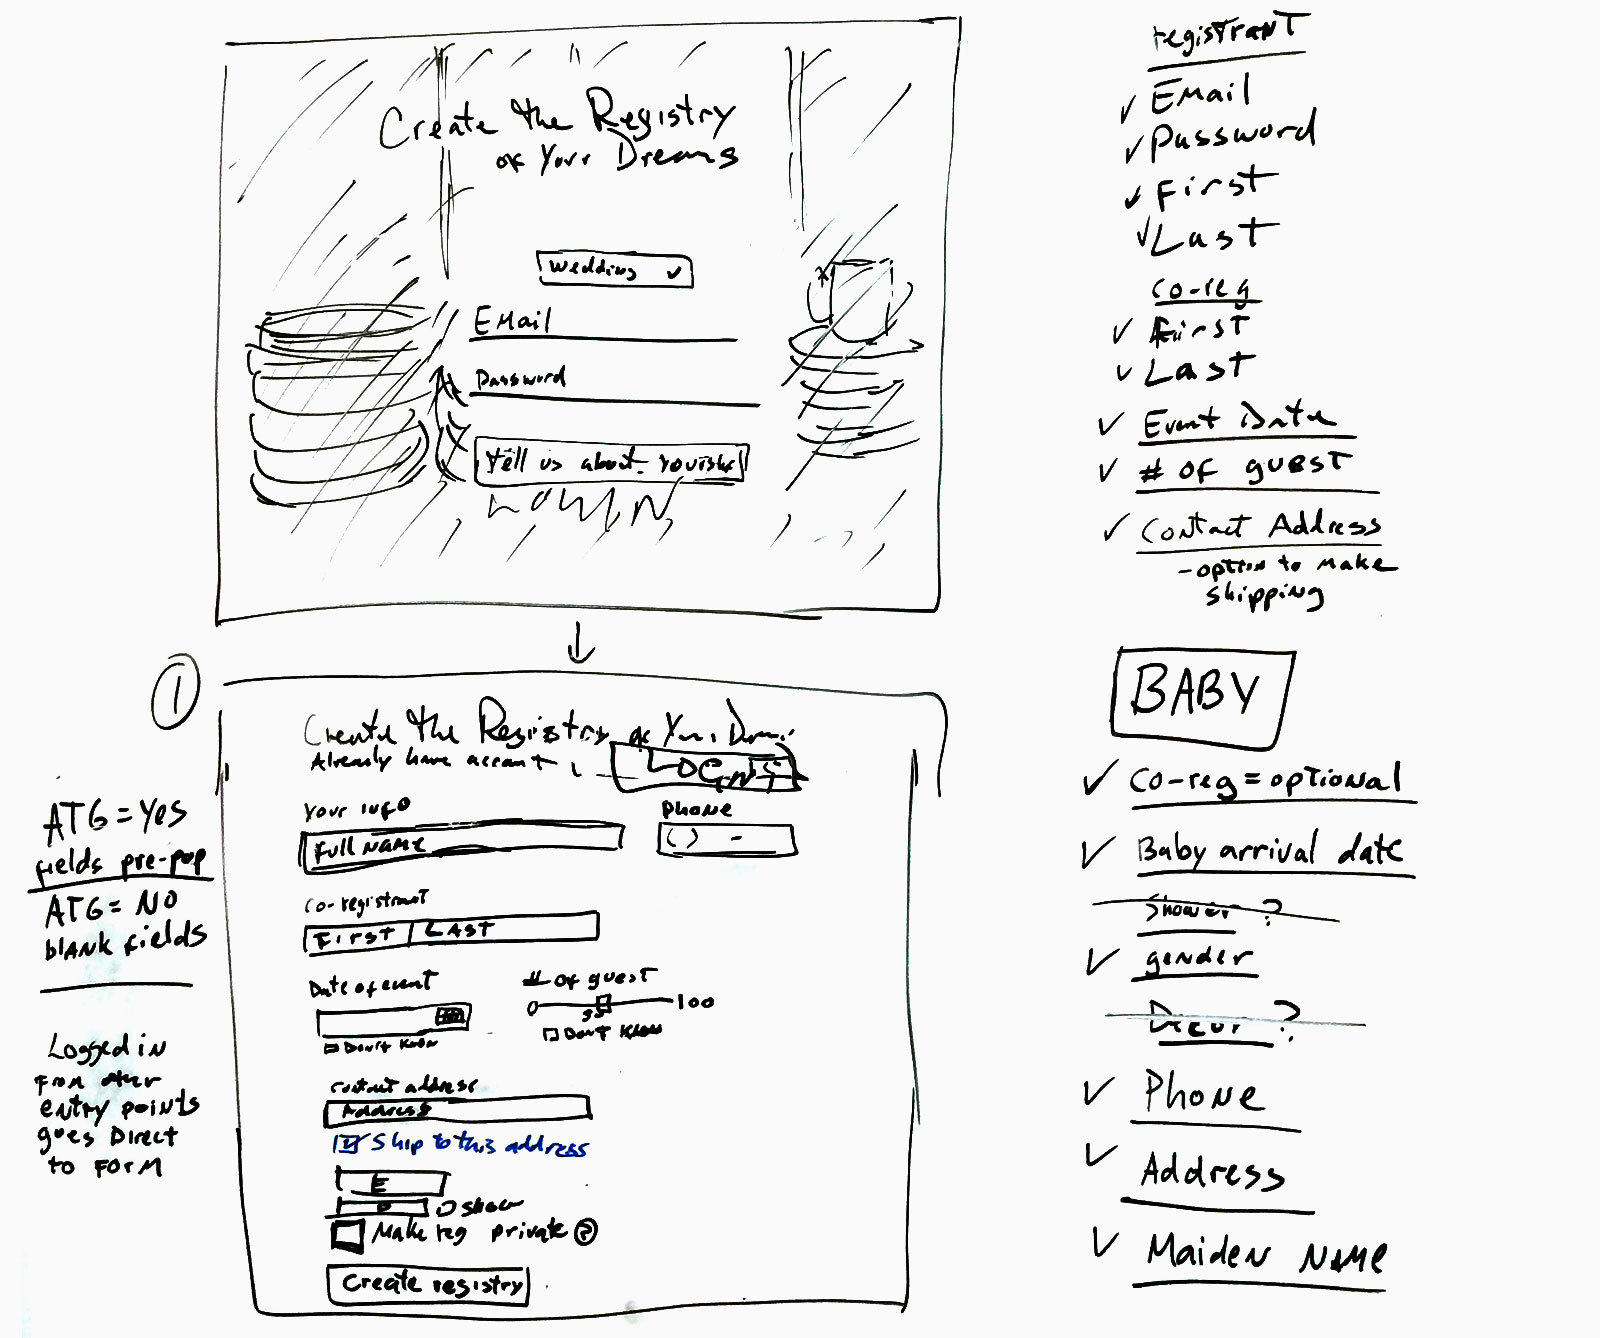 Create the Registry
of Your Dreams
Wedding
Email
Password
Tell us about
①
Create the Registry of Your
Already have account
LOGIN
Your info
Full Name
Phone
( ) -
Co-registrant
First Last
Date of event
Don't know
# of guest
0 100
Don't know
Contact address
Address
Ship to this address
E
show
Make reg private ?
Create registry
ATG = Yes
fields pre-pop
ATG = NO
blank fields
Logged in
from other
entry points
goes Direct
to Form
registrant
Email
Password
First
Last
co-reg
First
Last
Event Date
# of guest
Contact Address
- option to make
shipping
BABY
Co-reg = optional
Baby arrival date
Shower ?
gender
Decor ?
Phone
Address
Maiden Name